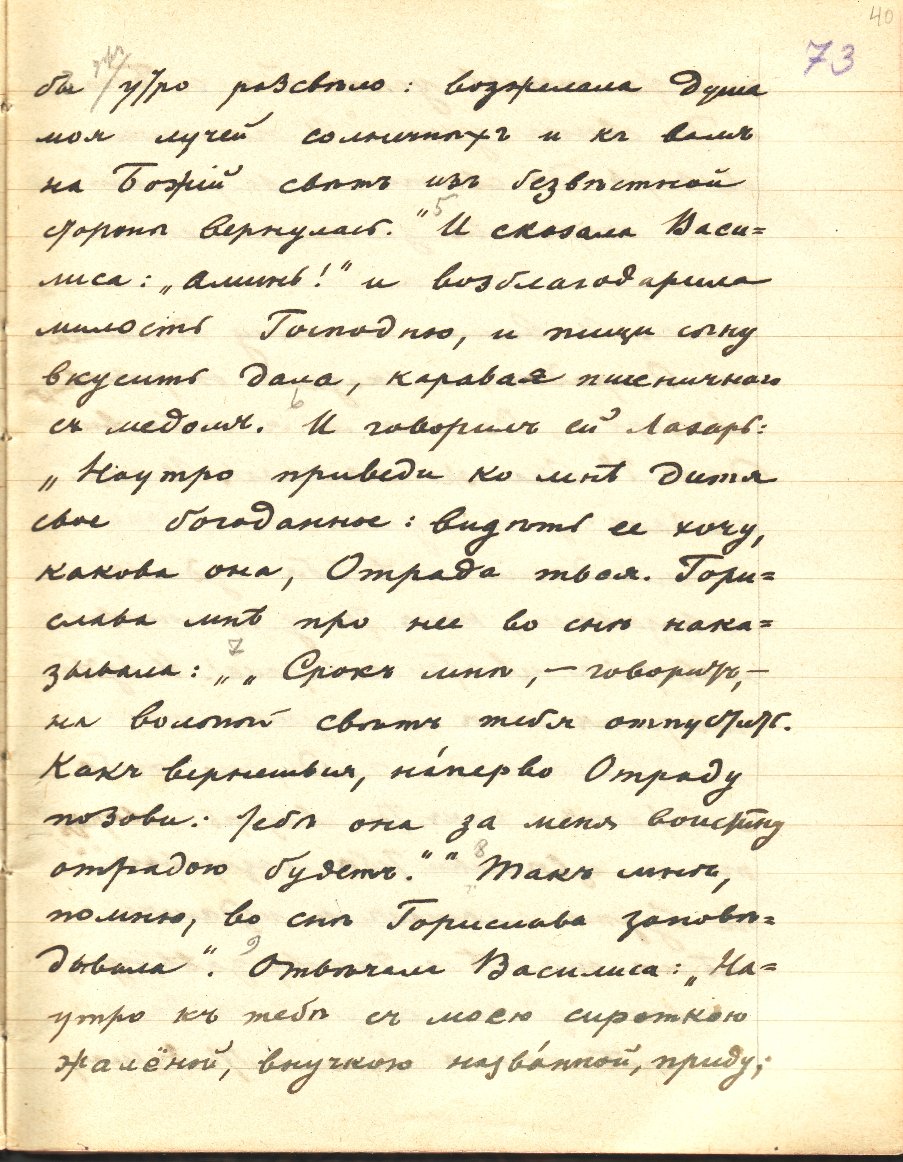 40
73
бы утро разсвѣло: возжелала душа
моя лучей солнечныхъ и къ вамъ
на Божій свѣтъ изъ безвѣстной
стороны вернулась." 5 И сказала Васи=
лиса: „Аминь!" и возблагодарила
милость Господню, и пищи сыну
вкусить дала, каравая пшеничного
съ медомъ. 6 И говоритъ ей Лазарь:
„Наутро приведи ко мнѣ дитя
свое богоданное: видѣть ее хочу,
какова она, Отрада твоя. Гори=
слава мнѣ про нее во снѣ нака=
зывала: 7 „ „Срокъ мнѣ, – говоритъ, –
на вольный свѣтъ тебя отпустить.
Какъ вернешься, на́перво Отраду
позови: тебѣ она за меня воистину
отрадою будетъ." " 8 Такъ мнѣ,
помню, во снѣ Горислава заповѣ=
дывала". 9 Отвѣчала Василиса: „На=
утро къ тебѣ съ моею сироткою
жалёной, внучкою назва́нной, приду;